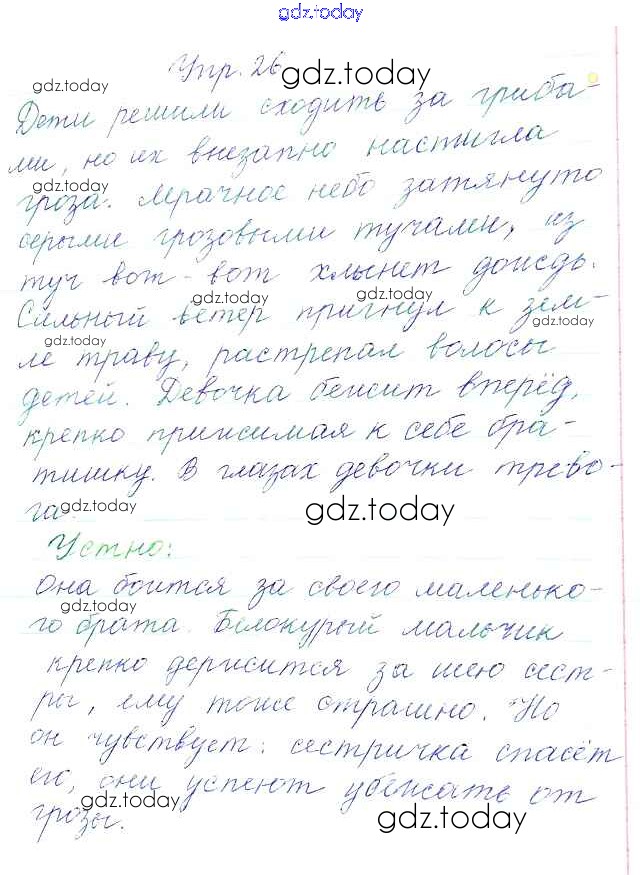 gdz.today
Упр. 26
gdz.today
gdz.today
Дети решили сходить за гриба-
ми, но их внезапно настигла
gdz.today
гроза. Мрачное небо затянуто
серыми грозовыми тучами, из
туч вот-вот хлынет дождь.
gdz.today
gdz.today
Сильный ветер пригнул к зем-
gdz.today
gdz.today
ле траву, растрепал волосы
детей. Девочка бежит вперёд,
крепко прижимая к себе бра-
тишку. В глазах девочки трево-
gdz.today
gdz.today
га.
Устно:
Она боится за своего маленько-
gdz.today
го брата. Белокурый мальчик
крепко держится за шею сест-
ры, ему тоже страшно. Но
он чувствует: сестричка спасёт
его, они успеют убежать от
gdz.today
gdz.today
грозы.